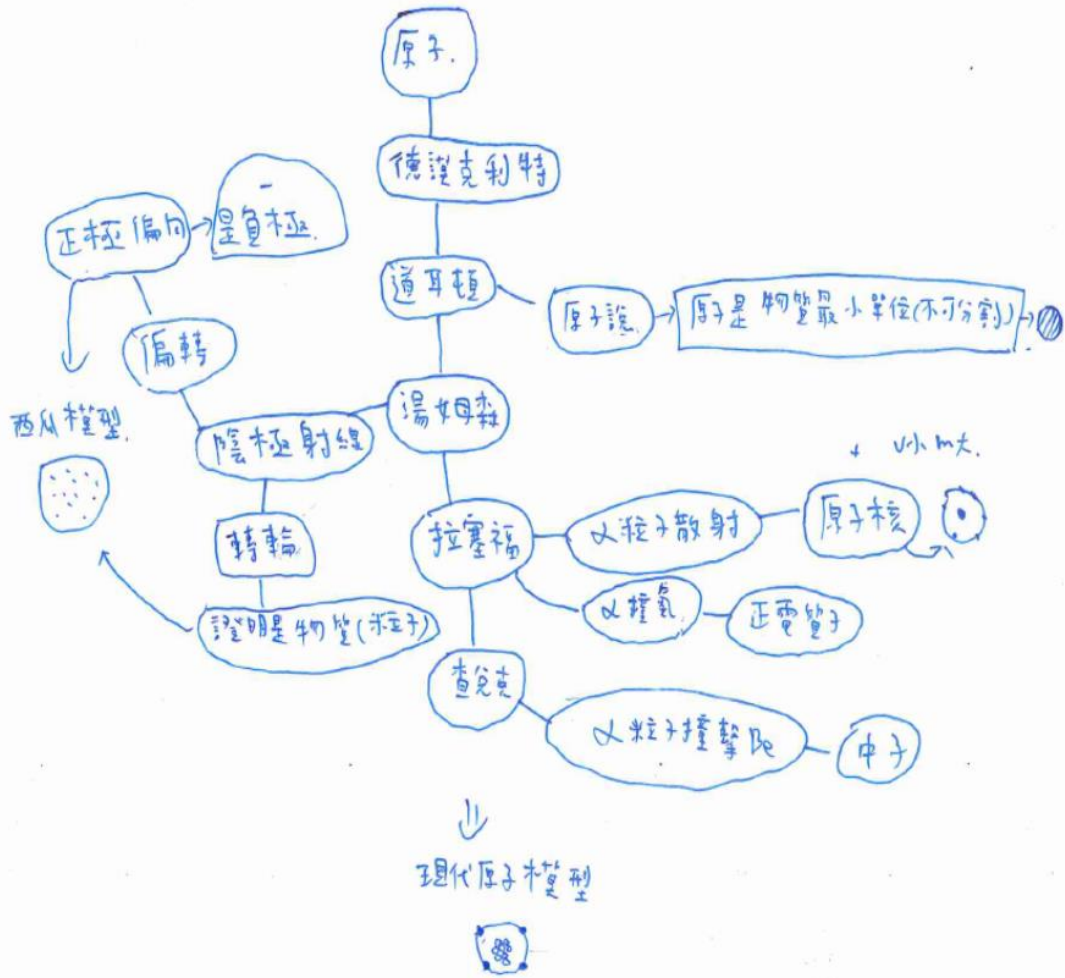 原子.
德謨克利特
正極偏向
－
是負極.
道耳頓
原子說.
原子是物質最小單位(不可分割)
偏轉
湯姆森
西瓜模型.
陰極射線
+ V小 m大.
轉輪
拉塞福
α粒子散射
原子核
證明是物質(粒子)
α撞氮.
正電質子
查兌克
α粒子撞擊Be
中子
現代原子模型